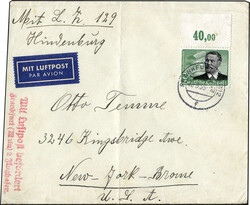 Mit L.Z. 129
Hindenburg
40,00
MIT LUFTPOST
PAR AVION
Otto Temme
3246 Kingsbridge Ave.
New-York-Bronx
U.S.A.
Mit Luftpost befördert